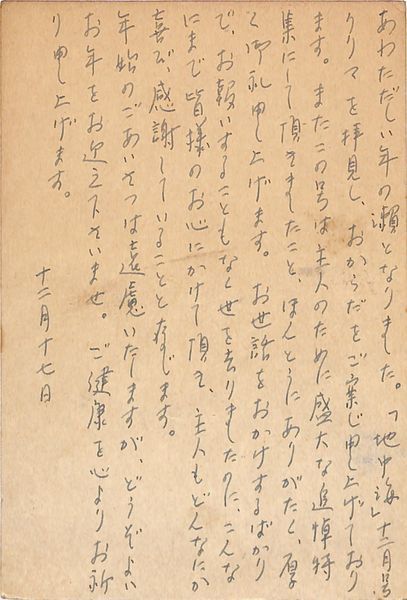 あわただしい年の瀬となりました。「地中海」十二月号
クリマを拝見し、おからだをご案じ申し上げており
ます。またこの号は主人のために盛大な追悼特
集にして頂きましたこと、ほんとうにありがたく、厚
く御礼申し上げます。お世話をおかけするばかり
で、お報いすることもなく世を去りましたのに、こんな
にまで皆様のお心にかけて頂き、主人もどんなにか
喜び、感謝していることと存じます。
年始のごあいさつは遠慮いたしますが、どうぞよい
お年をお迎え下さいませ。ご健康を心よりお祈
り申し上げます。
十二月十七日